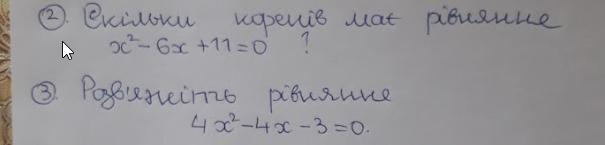 2. Скільки коренів має рівняння
x² - 6x + 11 = 0 ?
3. Розв'яжіть рівняння
4x² - 4x - 3 = 0.